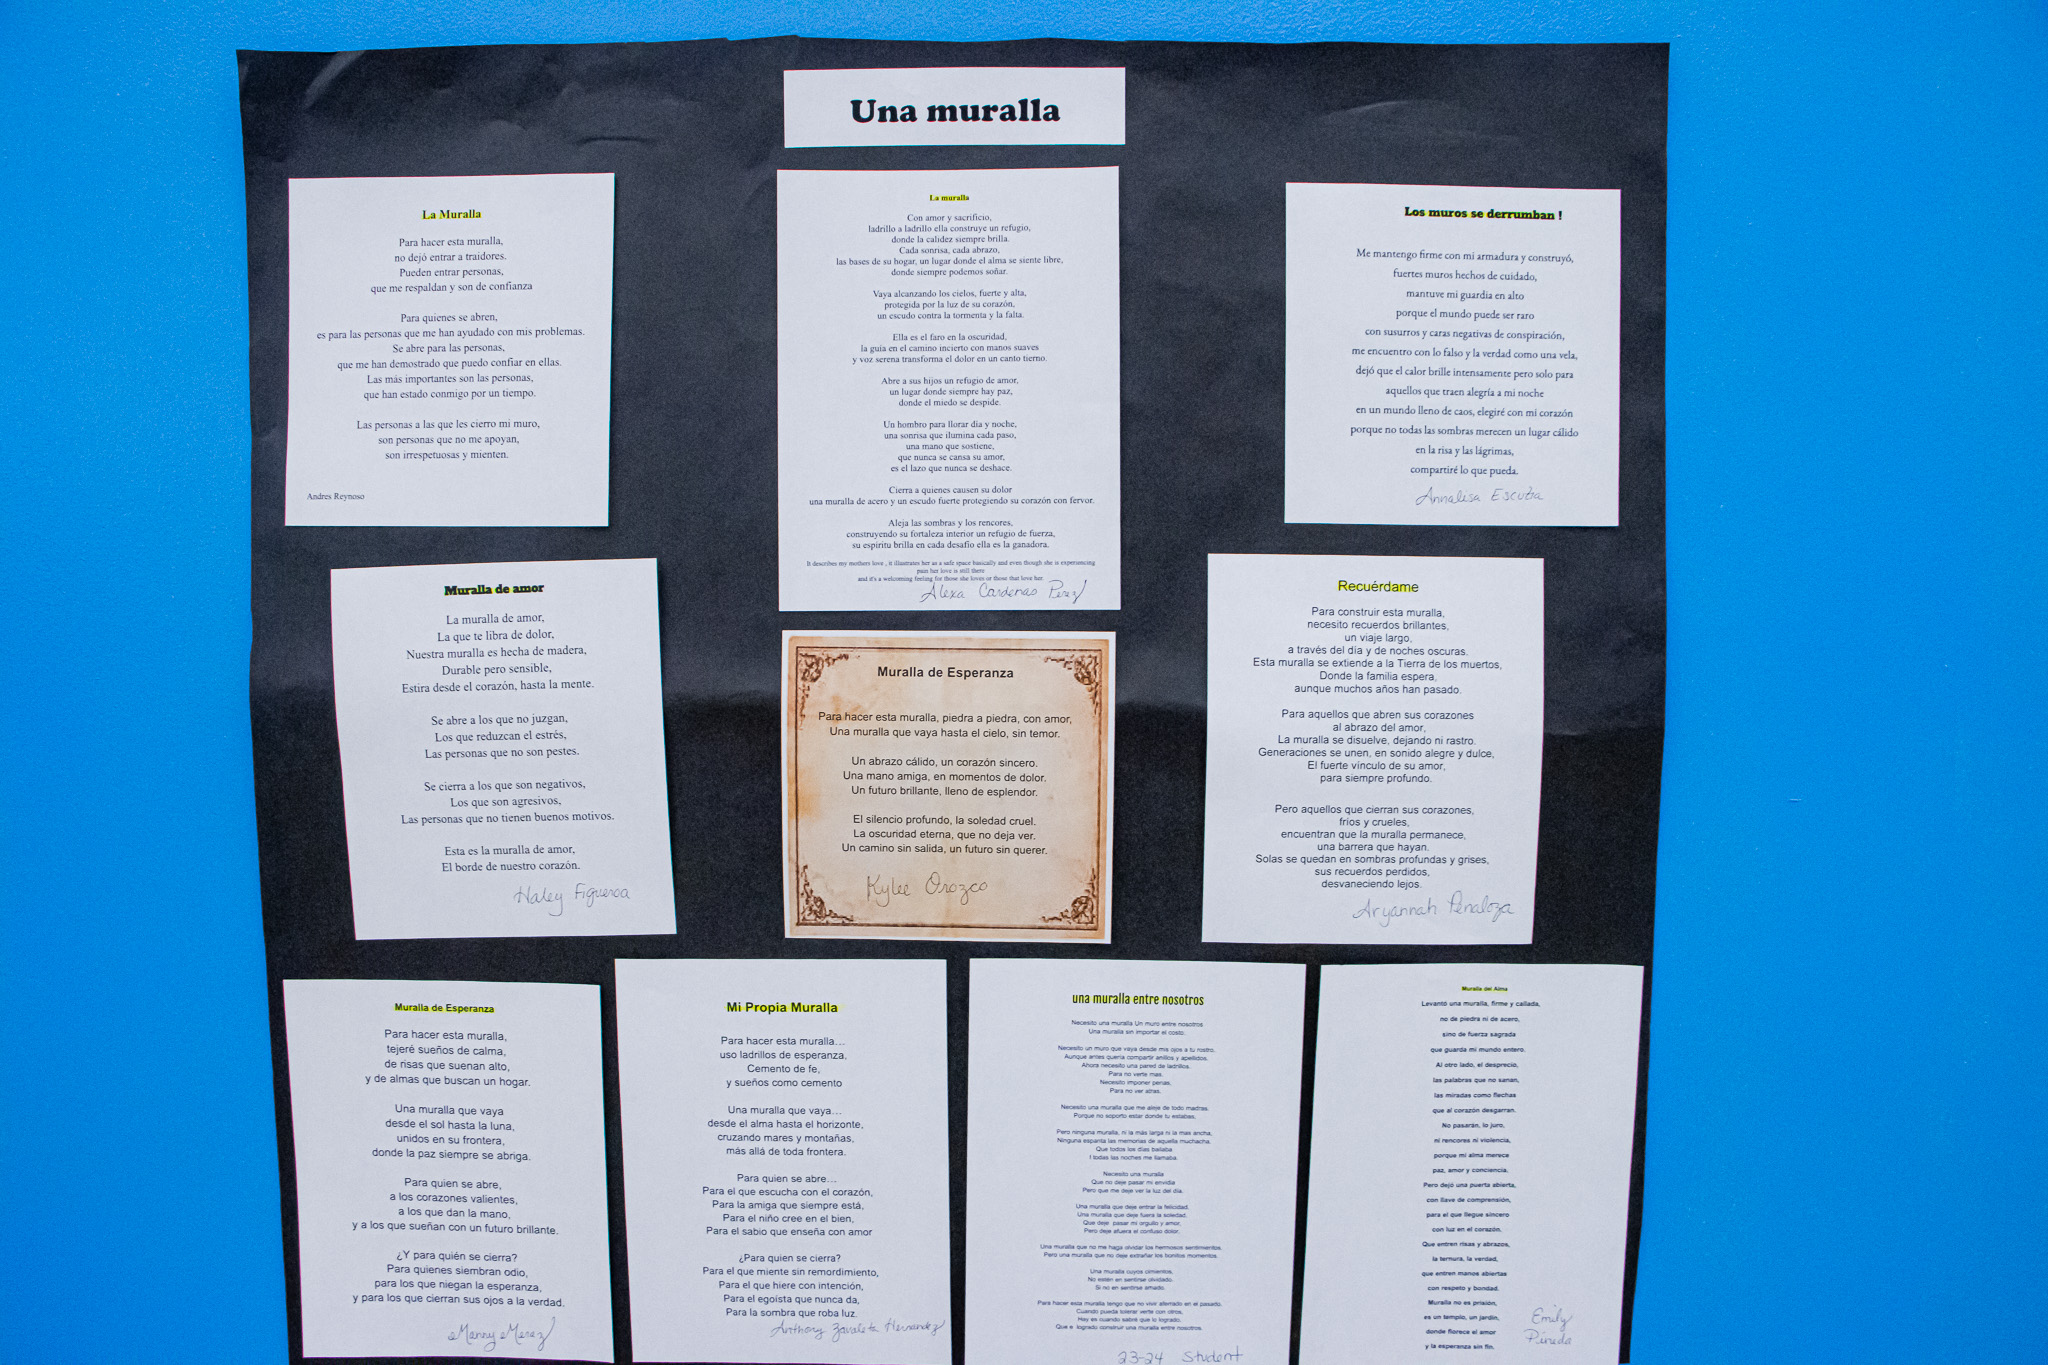 Una muralla
La Muralla
Para hacer esta muralla,
no dejó entrar a traidores.
Pueden entrar personas,
que me respaldan y son de confianza
Para quienes se abren,
es para las personas que me han ayudado con mis problemas.
Se abre para las personas,
que me han demostrado que puedo confiar en ellas.
Las más importantes son las personas,
que han estado conmigo por un tiempo.
Las personas a las que les cierro mi muro,
son personas que no me apoyan,
son irrespetuosas y mienten.
Andres Reynoso
La muralla
Con amor y sacrificio,
ladrillo a ladrillo ella construye un refugio,
donde la calidez siempre brilla.
Cada sonrisa, cada abrazo,
las bases de su hogar, un lugar donde el alma se siente libre,
donde siempre podemos soñar.
Vaya alcanzando los cielos, fuerte y alta,
protegida por la luz de su corazón,
un escudo contra la tormenta y la falta.
Ella es el faro en la oscuridad,
la guía en el camino incierto con manos suaves
y voz serena transforma el dolor en un canto tierno.
Abre a sus hijos un refugio de amor,
un lugar donde siempre hay paz,
donde el miedo se despide.
Un hombro para llorar día y noche,
una sonrisa que ilumina cada paso,
una mano que sostiene,
que nunca se cansa su amor,
es el lazo que nunca se deshace.
Cierra a quienes causen su dolor
una muralla de acero y un escudo fuerte protegiendo su corazón con fervor.
Aleja las sombras y los rencores,
construyendo su fortaleza interior un refugio de fuerza,
su espiritu brilla en cada desafío ella es la ganadora.
It describes my mothers love , it illustrates her as a safe space basically and even though she is experiencing
pain her love is still there
and it's a welcoming feeling for those she loves or those that love her
Alexa Cardenas Perez
Los muros se derrumban !
Me mantengo firme con mi armadura y construyó,
fuertes muros hechos de cuidado,
mantuve mi guardia en alto
porque el mundo puede ser raro
con susurros y caras negativas de conspiración,
me encuentro con lo falso y la verdad como una vela,
dejó que el calor brille intensamente pero solo para
aquellos que traen alegría a mi noche
en un mundo lleno de caos, elegiré con mi corazón
porque no todas las sombras merecen un lugar cálido
en la risa y las lágrimas,
compartiré lo que pueda.
Annalisa Escutia
Muralla de amor
La muralla de amor,
La que te libra de dolor,
Nuestra muralla es hecha de madera,
Durable pero sensible,
Estira desde el corazón, hasta la mente.
Se abre a los que no juzgan,
Los que reduzcan el estrés,
Las personas que no son pestes.
Se cierra a los que son negativos,
Los que son agresivos,
Las personas que no tienen buenos motivos.
Esta es la muralla de amor,
El borde de nuestro corazón.
Haley Figueroa
Muralla de Esperanza
Para hacer esta muralla, piedra a piedra, con amor,
Una muralla que vaya hasta el cielo, sin temor.
Un abrazo cálido, un corazón sincero.
Una mano amiga, en momentos de dolor.
Un futuro brillante, lleno de esplendor.
El silencio profundo, la soledad cruel.
La oscuridad eterna, que no deja ver.
Un camino sin salida, un futuro sin querer.
Kylee Orozco
Recuérdame
Para construir esta muralla,
necesito recuerdos brillantes,
un viaje largo,
a través del día y de noches oscuras.
Esta muralla se extiende a la Tierra de los muertos,
Donde la familia espera,
aunque muchos años han pasado.
Para aquellos que abren sus corazones
al abrazo del amor,
La muralla se disuelve, dejando ni rastro.
Generaciones se unen, en sonido alegre y dulce,
El fuerte vínculo de su amor,
para siempre profundo.
Pero aquellos que cierran sus corazones,
fríos y crueles,
encuentran que la muralla permanece,
una barrera que hayan.
Solas se quedan en sombras profundas y grises,
sus recuerdos perdidos,
desvaneciendo lejos.
Aryannah Penaloza
Muralla de Esperanza
Para hacer esta muralla,
tejeré sueños de calma,
de risas que suenan alto,
y de almas que buscan un hogar.
Una muralla que vaya
desde el sol hasta la luna,
unidos en su frontera,
donde la paz siempre se abriga.
Para quien se abre,
a los corazones valientes,
a los que dan la mano,
y a los que sueñan con un futuro brillante.
¿Y para quién se cierra?
Para quienes siembran odio,
para los que niegan la esperanza,
y para los que cierran sus ojos a la verdad.
Manny Meraz
Mi Propia Muralla
Para hacer esta muralla...
uso ladrillos de esperanza,
Cemento de fe,
y sueños como cemento
Una muralla que vaya...
desde el alma hasta el horizonte,
cruzando mares y montañas,
más allá de toda frontera.
Para quien se abre...
Para el que escucha con el corazón,
Para la amiga que siempre está,
Para el niño cree en el bien,
Para el sabio que enseña con amor
¿Para quien se cierra?
Para el que miente sin remordimiento,
Para el que hiere con intención,
Para el egoísta que nunca da,
Para la sombra que roba luz.
Anthony Zavaleta Hernandez
una muralla entre nosotros
Necesito una muralla Un muro entre nosotros
Una muralla sin importar el costo.
Necesito un muro que vaya desde mis ojos a tu rostro.
Aunque antes quería compartir anillos y apellidos.
Ahora necesito una pared de ladrillos.
Para no verte mas.
Necesito imponer penas,
Para no ver atras.
Necesito una muralla que me aleje de todo madras.
Porque no soporto estar donde tu estabas.
Pero ninguna muralla, ni la más larga ni la mas ancha,
Ninguna espanta las memorias de aquella muchacha.
Que todos los días bailaba
I todas las noches me llamaba.
Necesito una muralla
Que no deje pasar mi envidia
Pero que me deje ver la luz del dia.
Una muralla que deje entrar la felicidad.
Una muralla que deje fuera la soledad.
Que deje pasar mi orgullo y amor,
Pero deje afuera el confuso dolor.
Una muralla que no me haga olvidar los hermosos sentimientos.
Pero una muralla que no deje extrañar los bonitos momentos.
Una muralla cuyos cimientos.
No estén en sentirse olvidado.
Si no en sentirse amado.
Para hacer esta muralla tengo que no vivir aferrado en el pasado.
Cuando pueda tolerar verte con otros,
Hay es cuando sabré que lo logrado.
Que e logrado construir una muralla entre nosotros.
23-24 Student
Muralla del Alma
Levantó una muralla, firme y callada,
no de piedra ni de acero,
sino de fuerza sagrada
que guarda mi mundo entero.
Al otro lado, el desprecio,
las palabras que no sanan,
las miradas como flechas
que al corazón desgarran.
No pasarán, lo juro,
ni rencores ni violencia,
porque mi alma merece
paz, amor y conciencia.
Pero dejó una puerta abierta,
con llave de comprensión,
para el que llegue sincero
con luz en el corazón.
Que entren risas y abrazos,
la ternura, la verdad,
que entren manos abiertas
con respeto y bondad.
Muralla no es prisión,
es un templo, un jardín,
donde florece el amor
y la esperanza sin fin.
Emily
Pineda